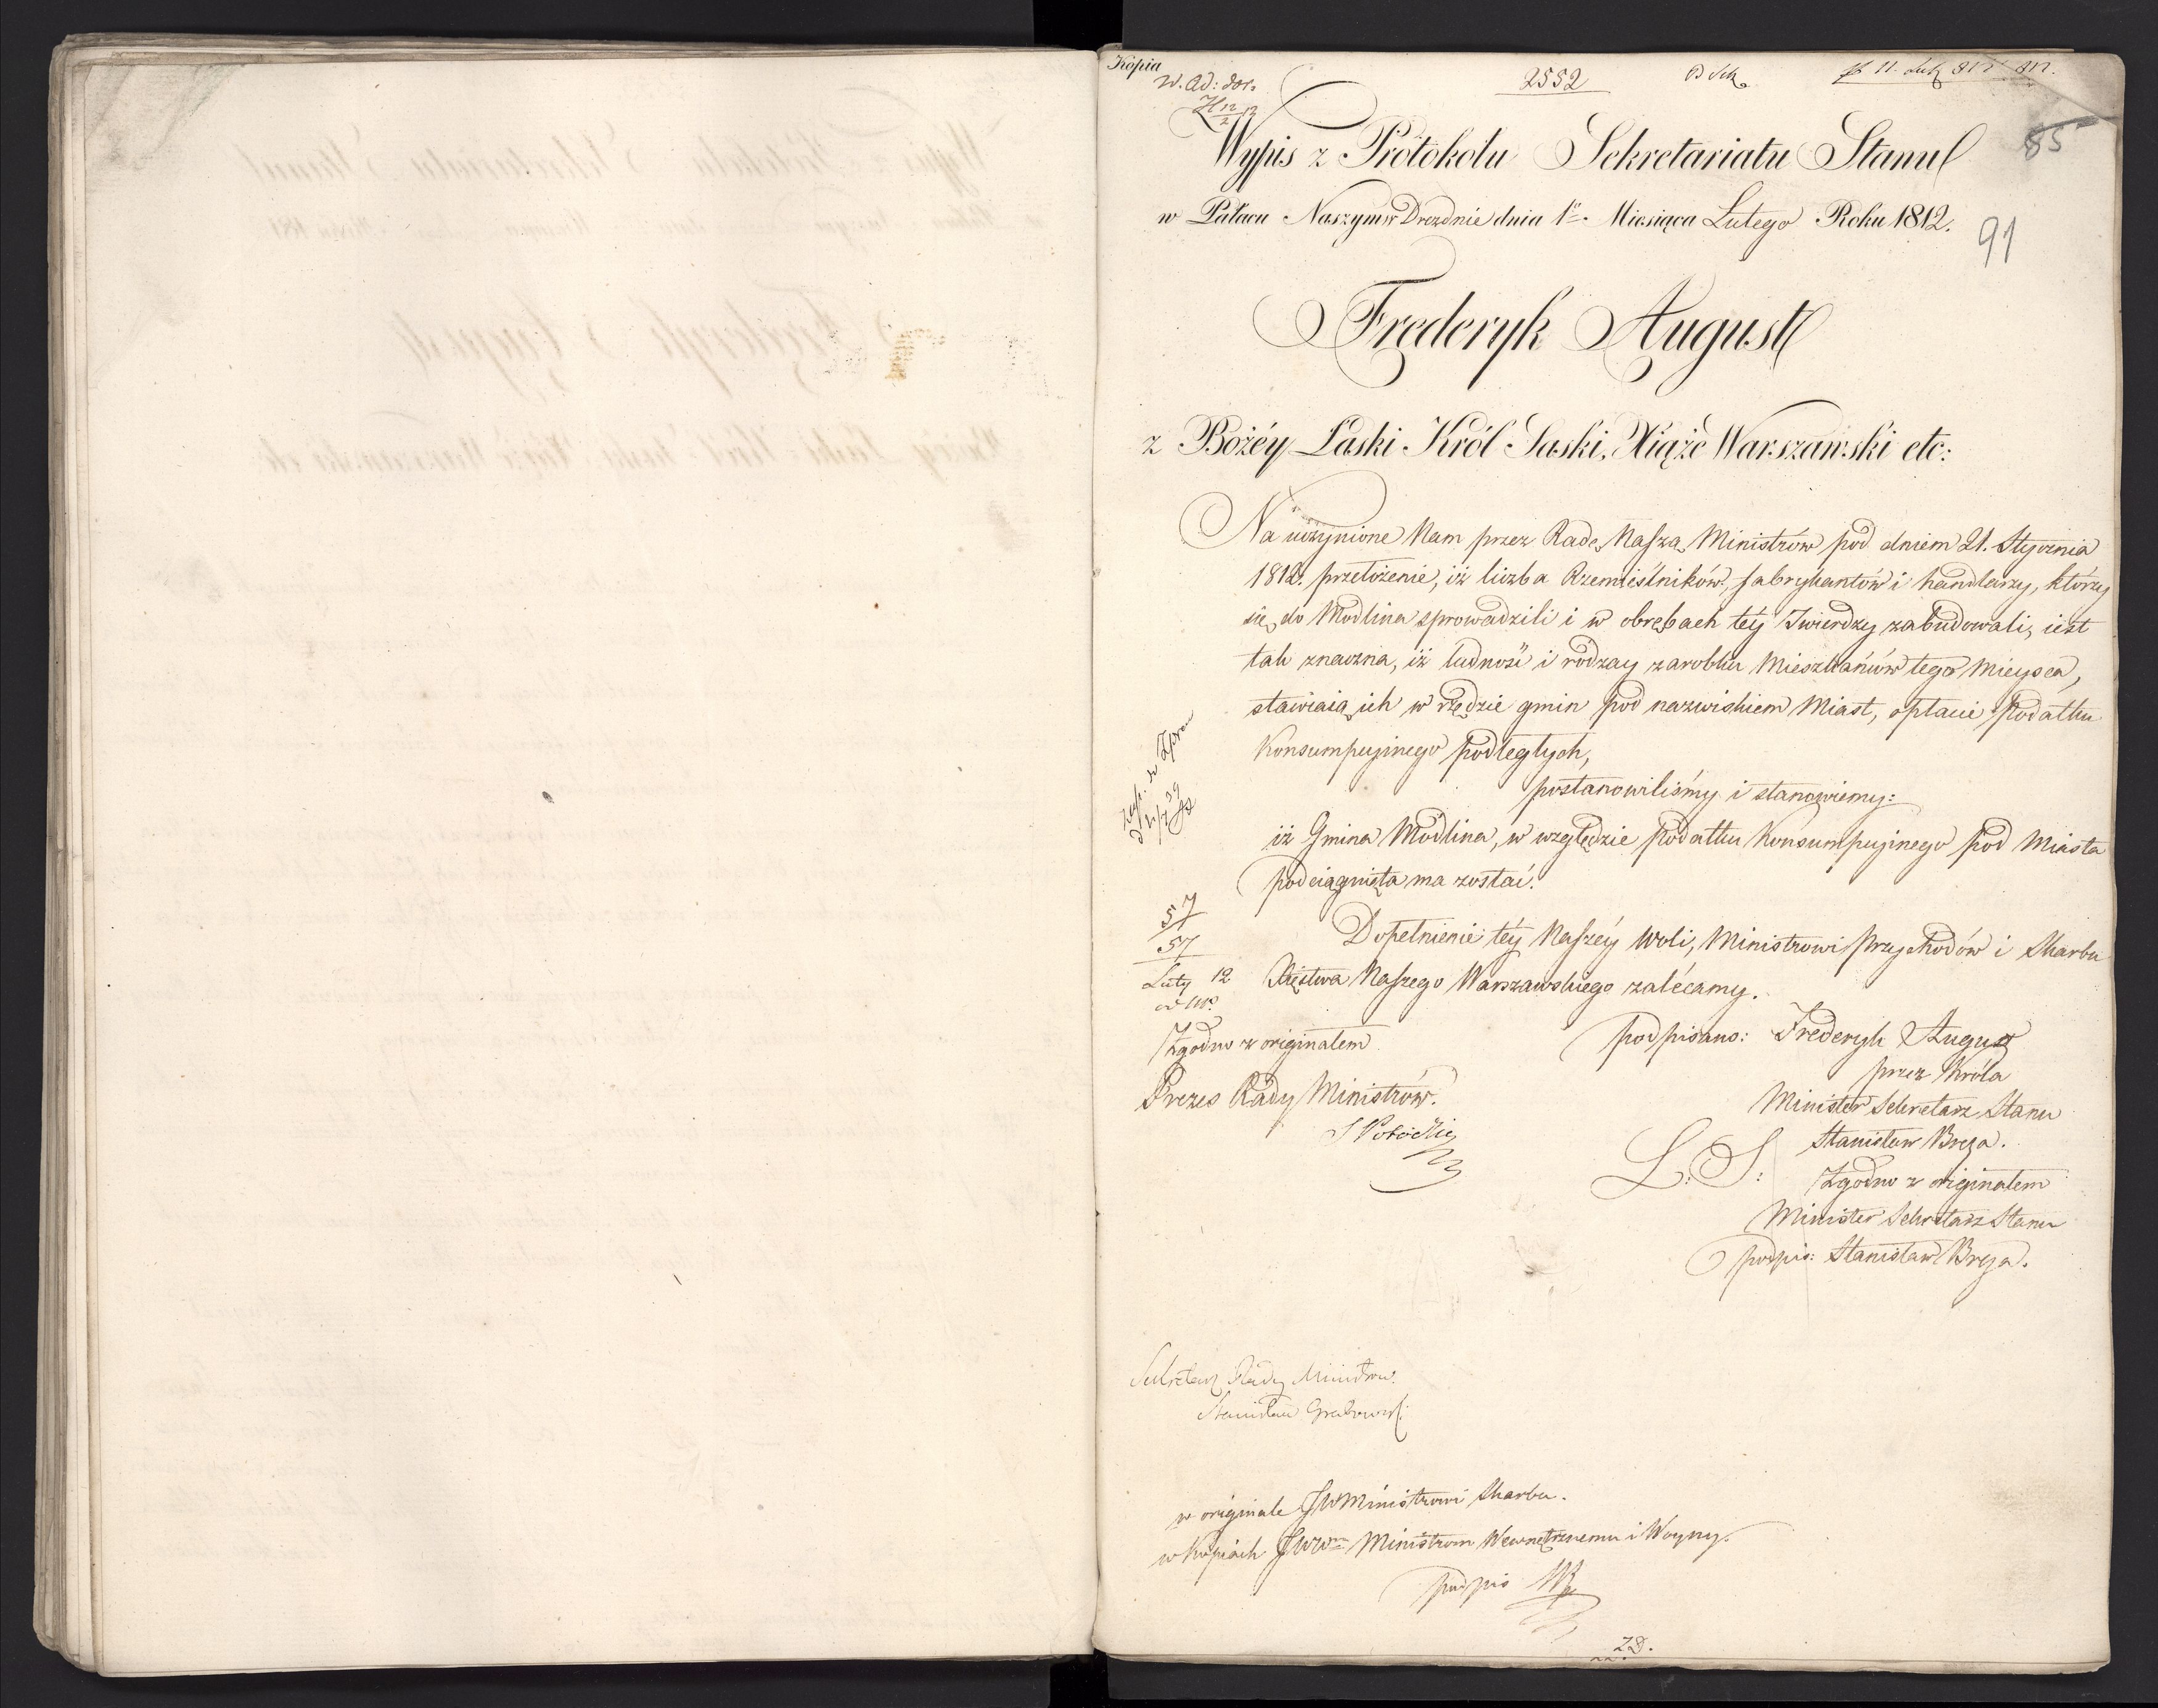 Kopia
W. Ad: dor.
2552
85
Wypis z Protokołu Sekretariatu Stanu
w Pałacu Naszym w Dreznie dnia 1º Miesiąca Lutego Roku 1812.
91
Frederyk August
z Bożéy Łaski Król Saski, Xiąże Warszawski etc:
Na uczynione Nam przez Radę Naszą Ministrów pod dniem 21. Stycznia
1812. przełożenie, iż liczba Rzemieślników, fabrykantów i handlarzy, którzy
się do Modlina sprowadzili i w obrębach téy Twierdzy zabudowali, iest
tak znaczna, iż ludność i rodzay zarobku Mieszkańców tego Mieysca,
stawiaią ich w rzędzie gmin pod nazwiskiem Miast, opłacie Podatku
Konsumpcyinego podległych,
postanowiliśmy i stanowiemy:
iż Gmina Modlina, w względzie Podatku Konsumpcyinego pod Miasta
podciągnięta ma zostać.
57
57
Dopełnienie téy Naszéy Woli, Ministrowi Przychodów i Skarbu
Luty 12 Xięstwa Naszego Warszawskiego zalécamy.
Zgodno z originałem
podpisano: Frederyk August
przez Króla
Prezes Rady Ministrów.
Minister Sekretarz Stanu
S Potocki
Stanisław Breza.
L: S:
Zgodno z originałem
Minister Sekretarz Stanu
podpis: Stanisław Breza.
Sekretarz Rady Ministrów.
Stanisław Grabowski
w originale JW Ministrowi Skarbu.
w Kopiach JWW Ministrom Wewnętrznemu i Woyny.
podpis